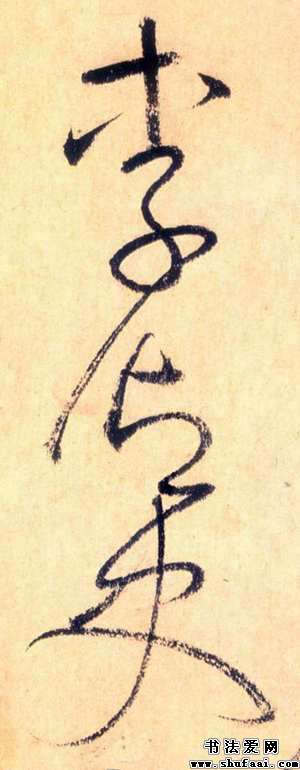 李御史
书法爱网
www.shufaai.com